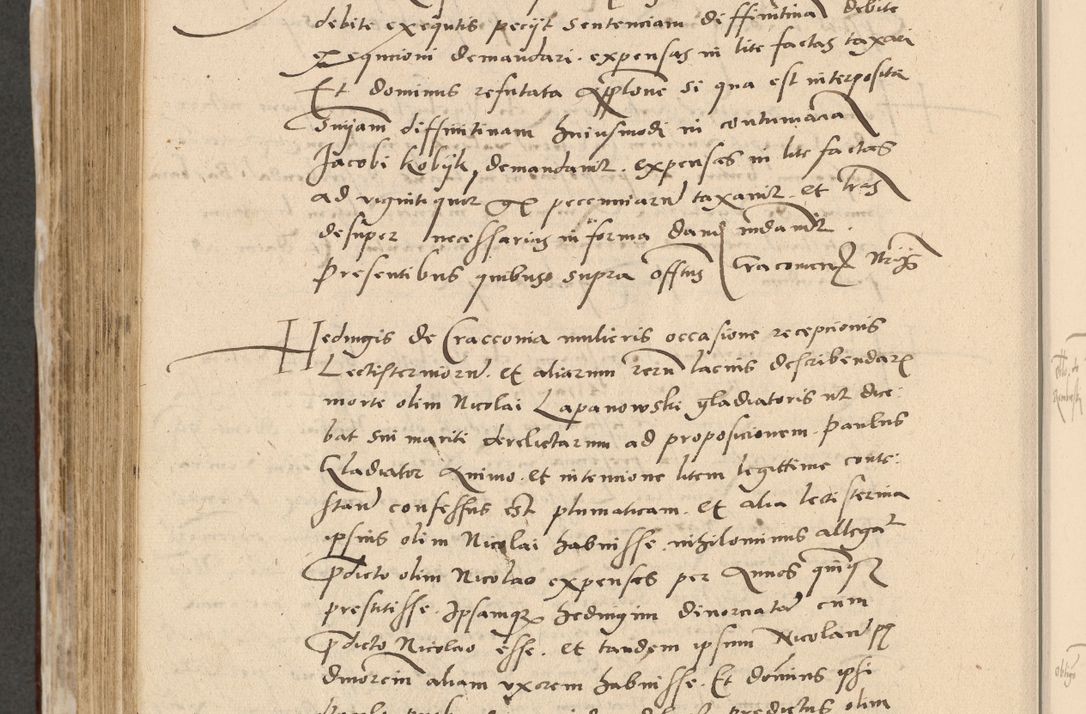 debite exequtis pecijt sentenciam diffinitiuā debite
exequcioni demandari. expensas in lite factas taxari
Et dominus refutata Appellone si qua est interposita
Sniam diffinitiuam huiusmodi in contumacia
Jacobi Kobijlk, demandauit. expensas in lite factas
ad viginti quī gr pecuniarū taxauit. et lras
desuper necessarias in forma dand mdauit.
Presentibus quibus supra offtus Cracouien Nrijs
Hedwigis de Craccouia mulieris occasione recepcionis
Lectisterniorū. et aliarum rerū lacius describendarz
morte olim Nicolai Lapanowski gladiatoris ut dice
bat sui mariti derelictarum ad proposicionem Paulus
Gladiator Animo. et intencione litem legittime conte
stan confessus est plumaticam. et alia lectisternia
ipsius olim Nicolai habuisse. nihilominus allegat
Pdicto olim Nicolao expensas per Annos quinqz
prestitisse. Ipsamqz Hedwigim diuorciatā cum
Pdicto Nicolao esse. et tandem ipsum Nicolaū p
diuorciū aliam vxorem habuisse. Et dominus ipsi
predictus olim